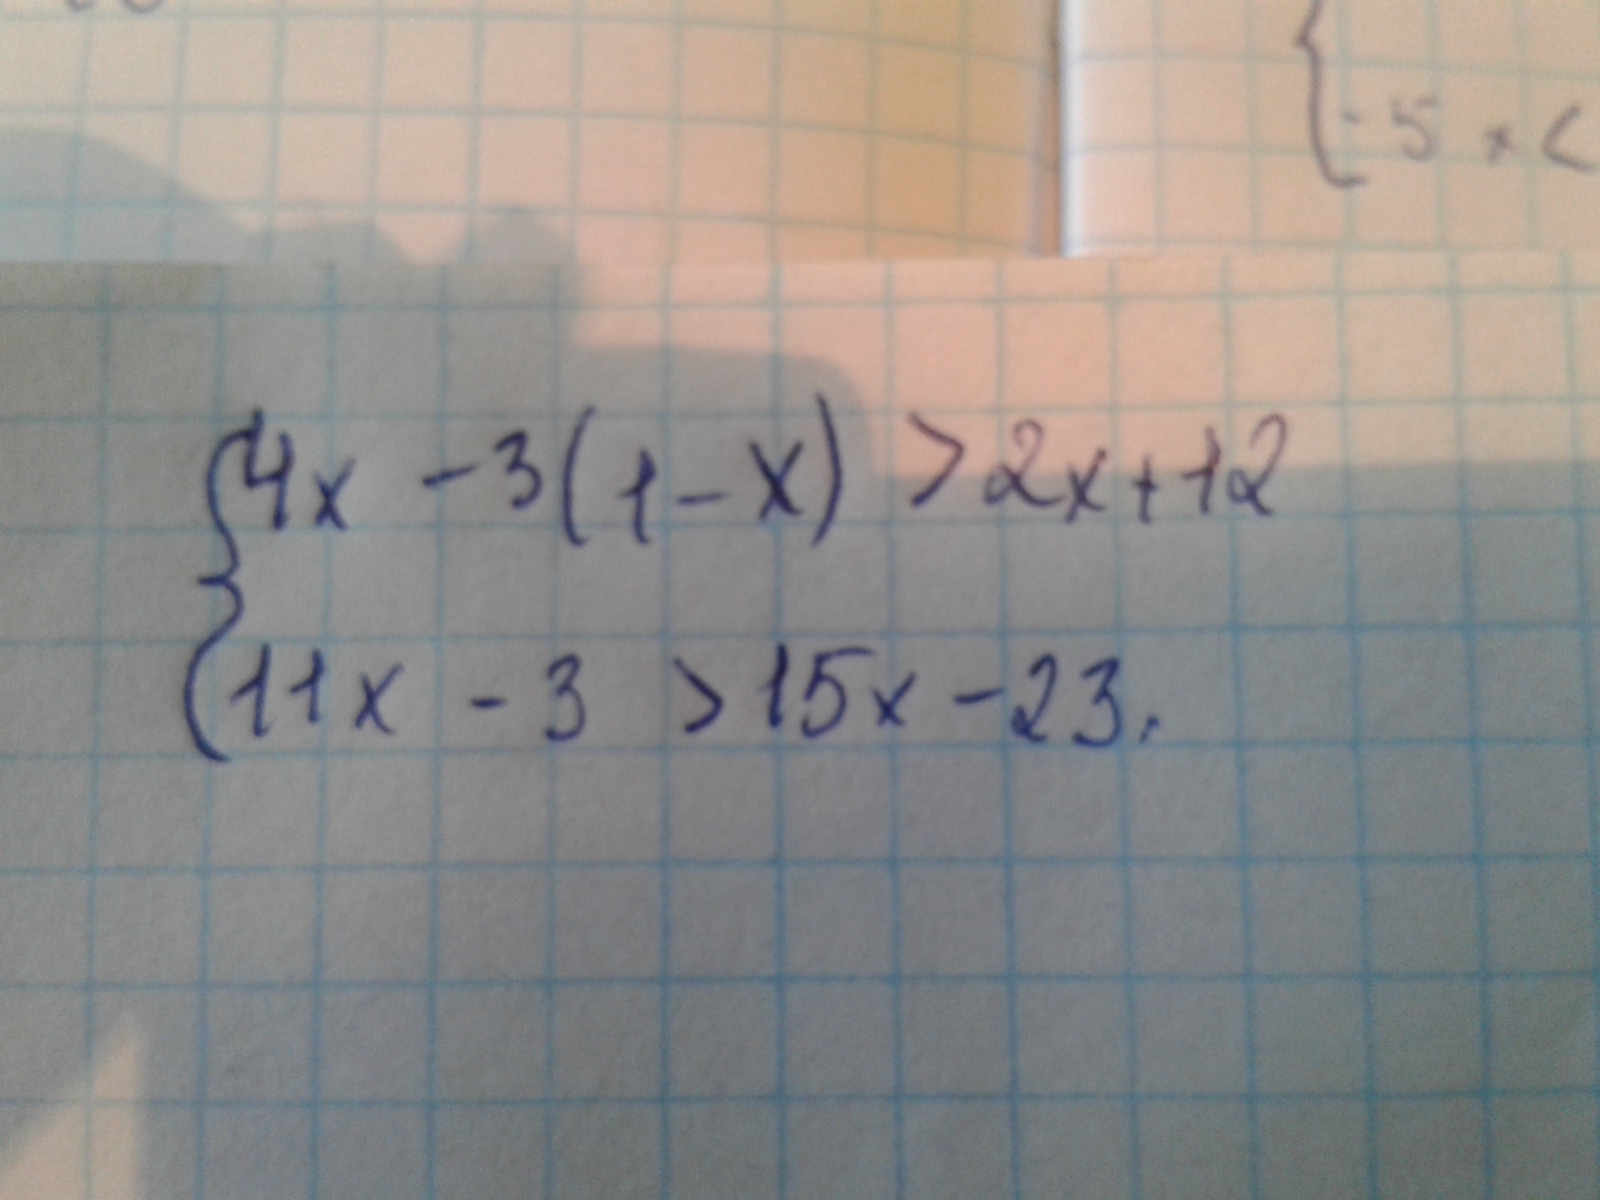 -5x<
4x -3(1-x) >2x+12
11x - 3 >15x-23.